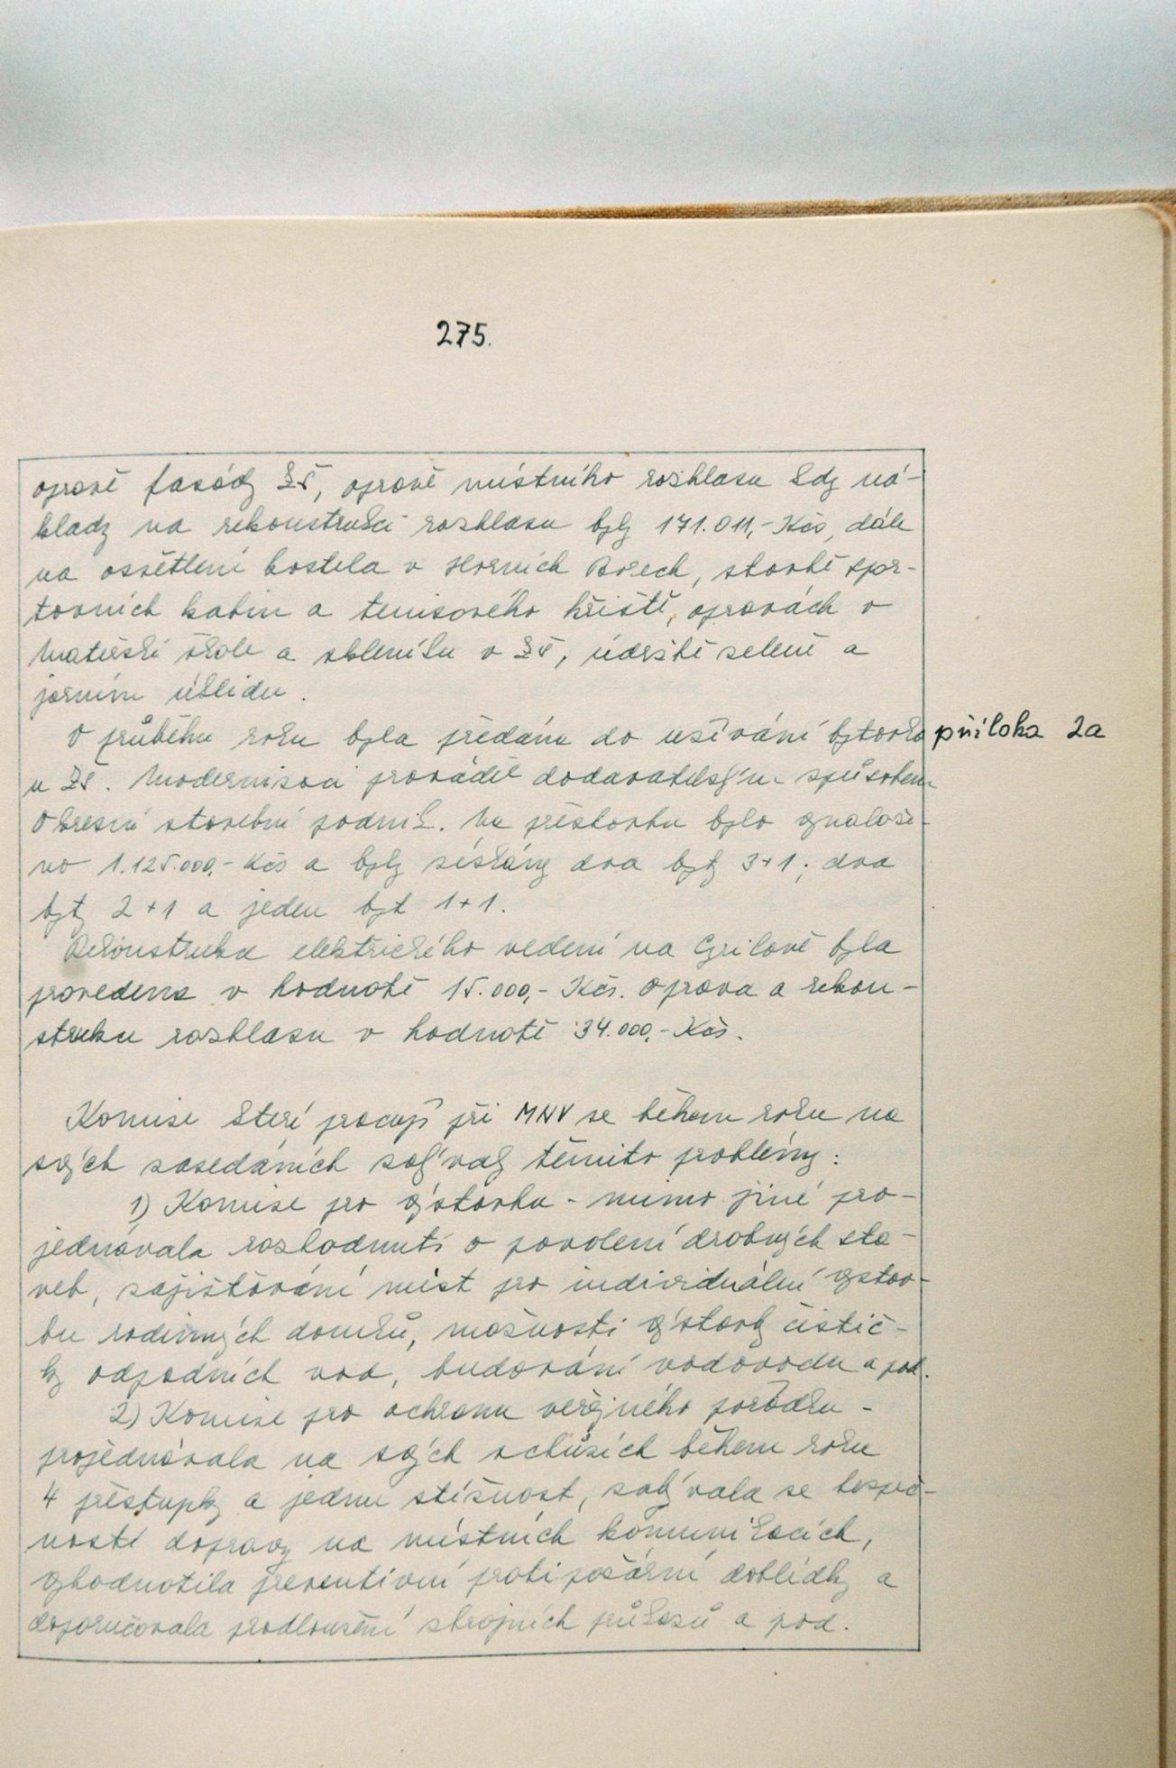 275.
opravě fasády ZŠ, opravě místního rozhlasu kdy ná-
klady na rekonstrukci rozhlasu byly 171.011,- Kčs, dále
na osvětlení kostela v Horních Borech, stavbě spor-
tovních kabin a tenisového hřiště, opravách v
Mateřské škole a skleníku v ZŠ, údržbě zeleně a
jarním úklidu.
V průběhu roku byla předána do užívání bytovka
příloha 2a
u ZŠ. Modernisaci prováděl dodavatelským způsobem
Okresní stavební podnik. Na přestavbu bylo vynalože-
no 1.125.000,- Kčs a byly získány dva byty 3+1, dva
byty 2+1 a jeden byt 1+1.
Rekonstrukce elektrického vedení na Cyrilově byla
provedena v hodnotě 15.000,- Kčs. Oprava a rekon-
strukce rozhlasu v hodnotě 34.000,- Kčs.
Komise které pracují při MNV se během roku na
svých zasedáních zabývaly těmito problémy:
1) Komise pro výstavbu - mimo jiné pro-
jednávala rozhodnutí o povolení drobných sta-
veb, zajišťování míst pro individuální výstav-
bu rodinných domků, možnosti výstavby čistič-
ky odpadních vod, budování vodovodu a pod.
2) Komise pro ochranu veřejného pořádku -
projednávala na svých schůzích během roku
4 přestupky a jednu stížnost, zabývala se bezpeč-
ností dopravy na místních komunikacích,
vyhodnotila preventivní protipožární prohlídky a
doporučovala prodloužení zbrojních průkazů a pod.